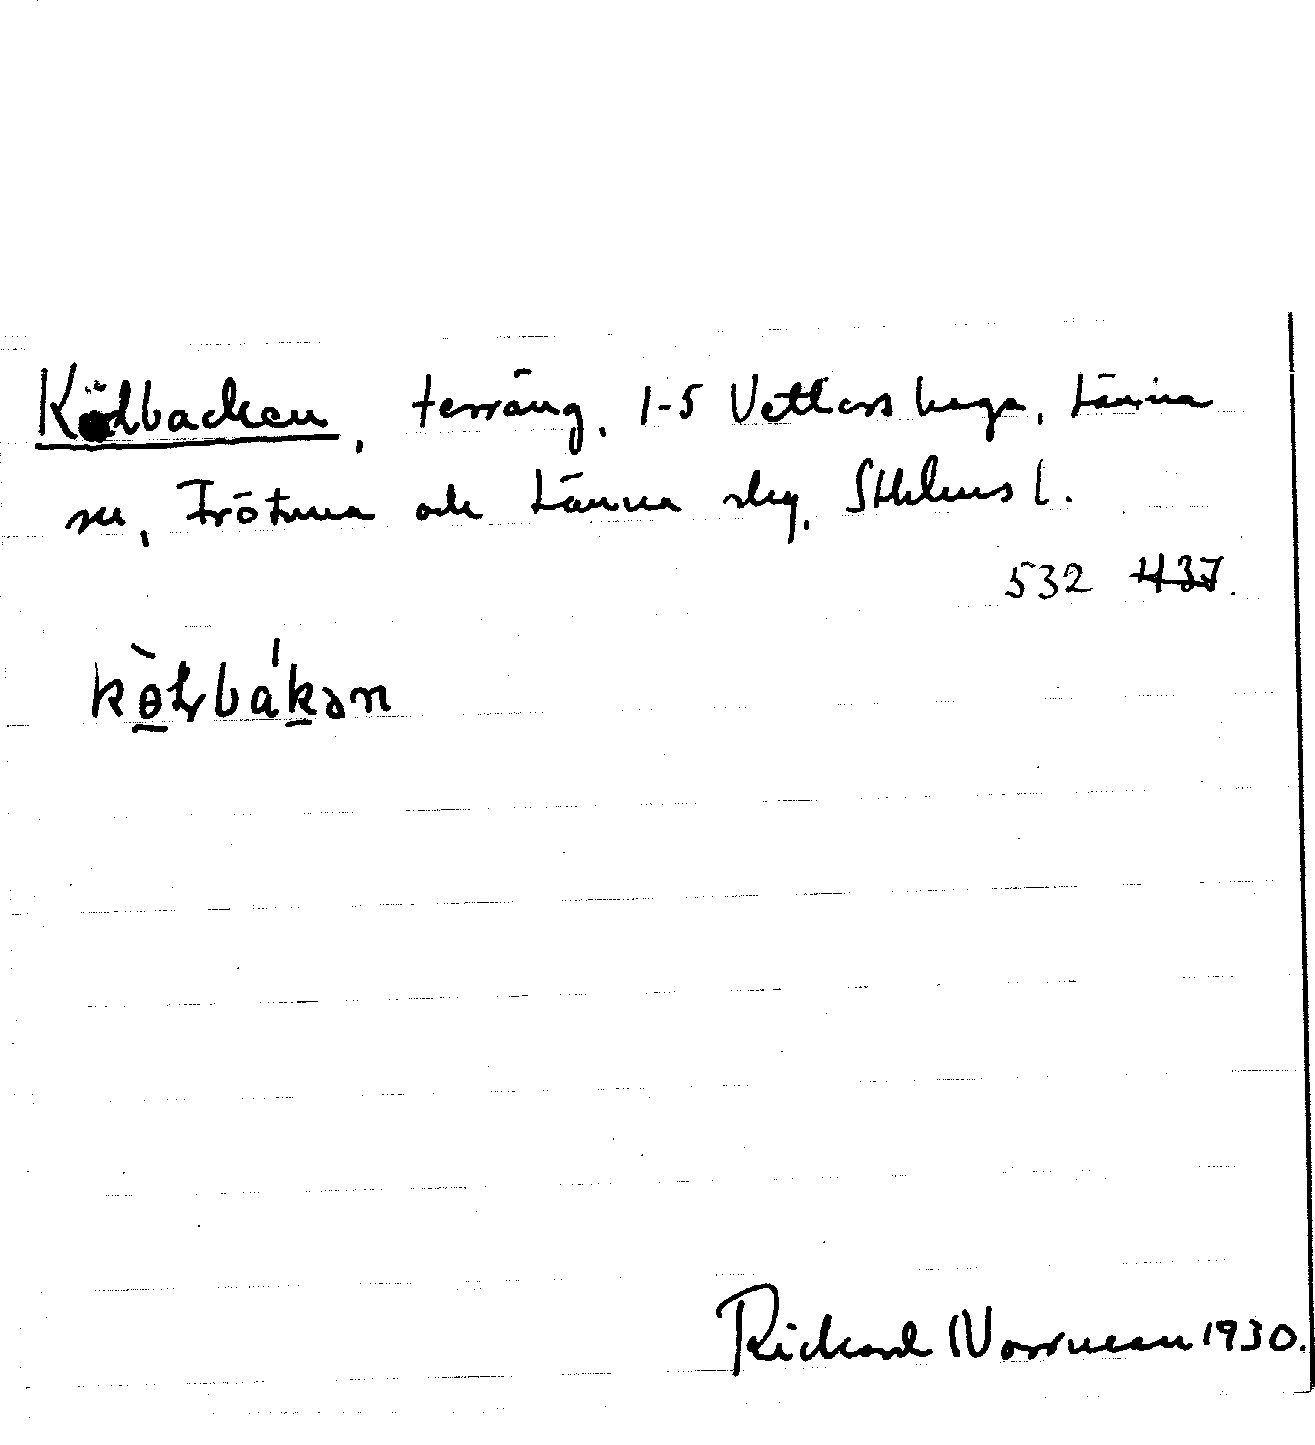 Ködbacken, terräng, 1-5 Vettershaga, Länna
sn, Frötuna och Länna slg, Sthlms l.
532 437.
Rickard Norrman 1930.